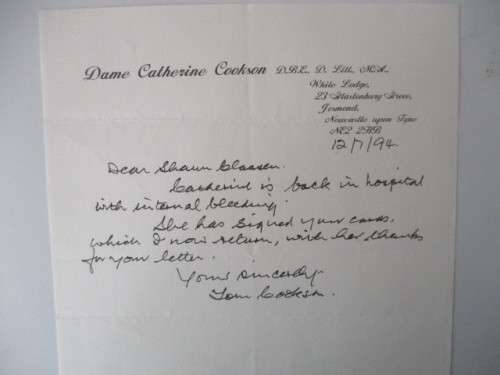 Dame Catherine Cookson D.B.E., D. Litt., M.A.,
White Lodge,
23 Glastonbury Grove,
Jesmond,
Newcastle upon Tyne
NE2 2HB
12/7/94.
Dear Shaun Claasen.
Catherine is back in hospital
with internal bleeding.
She has signed your cards.
which I now return, with her thanks
for your letter.
Yours sincerely
Tom Cookson.